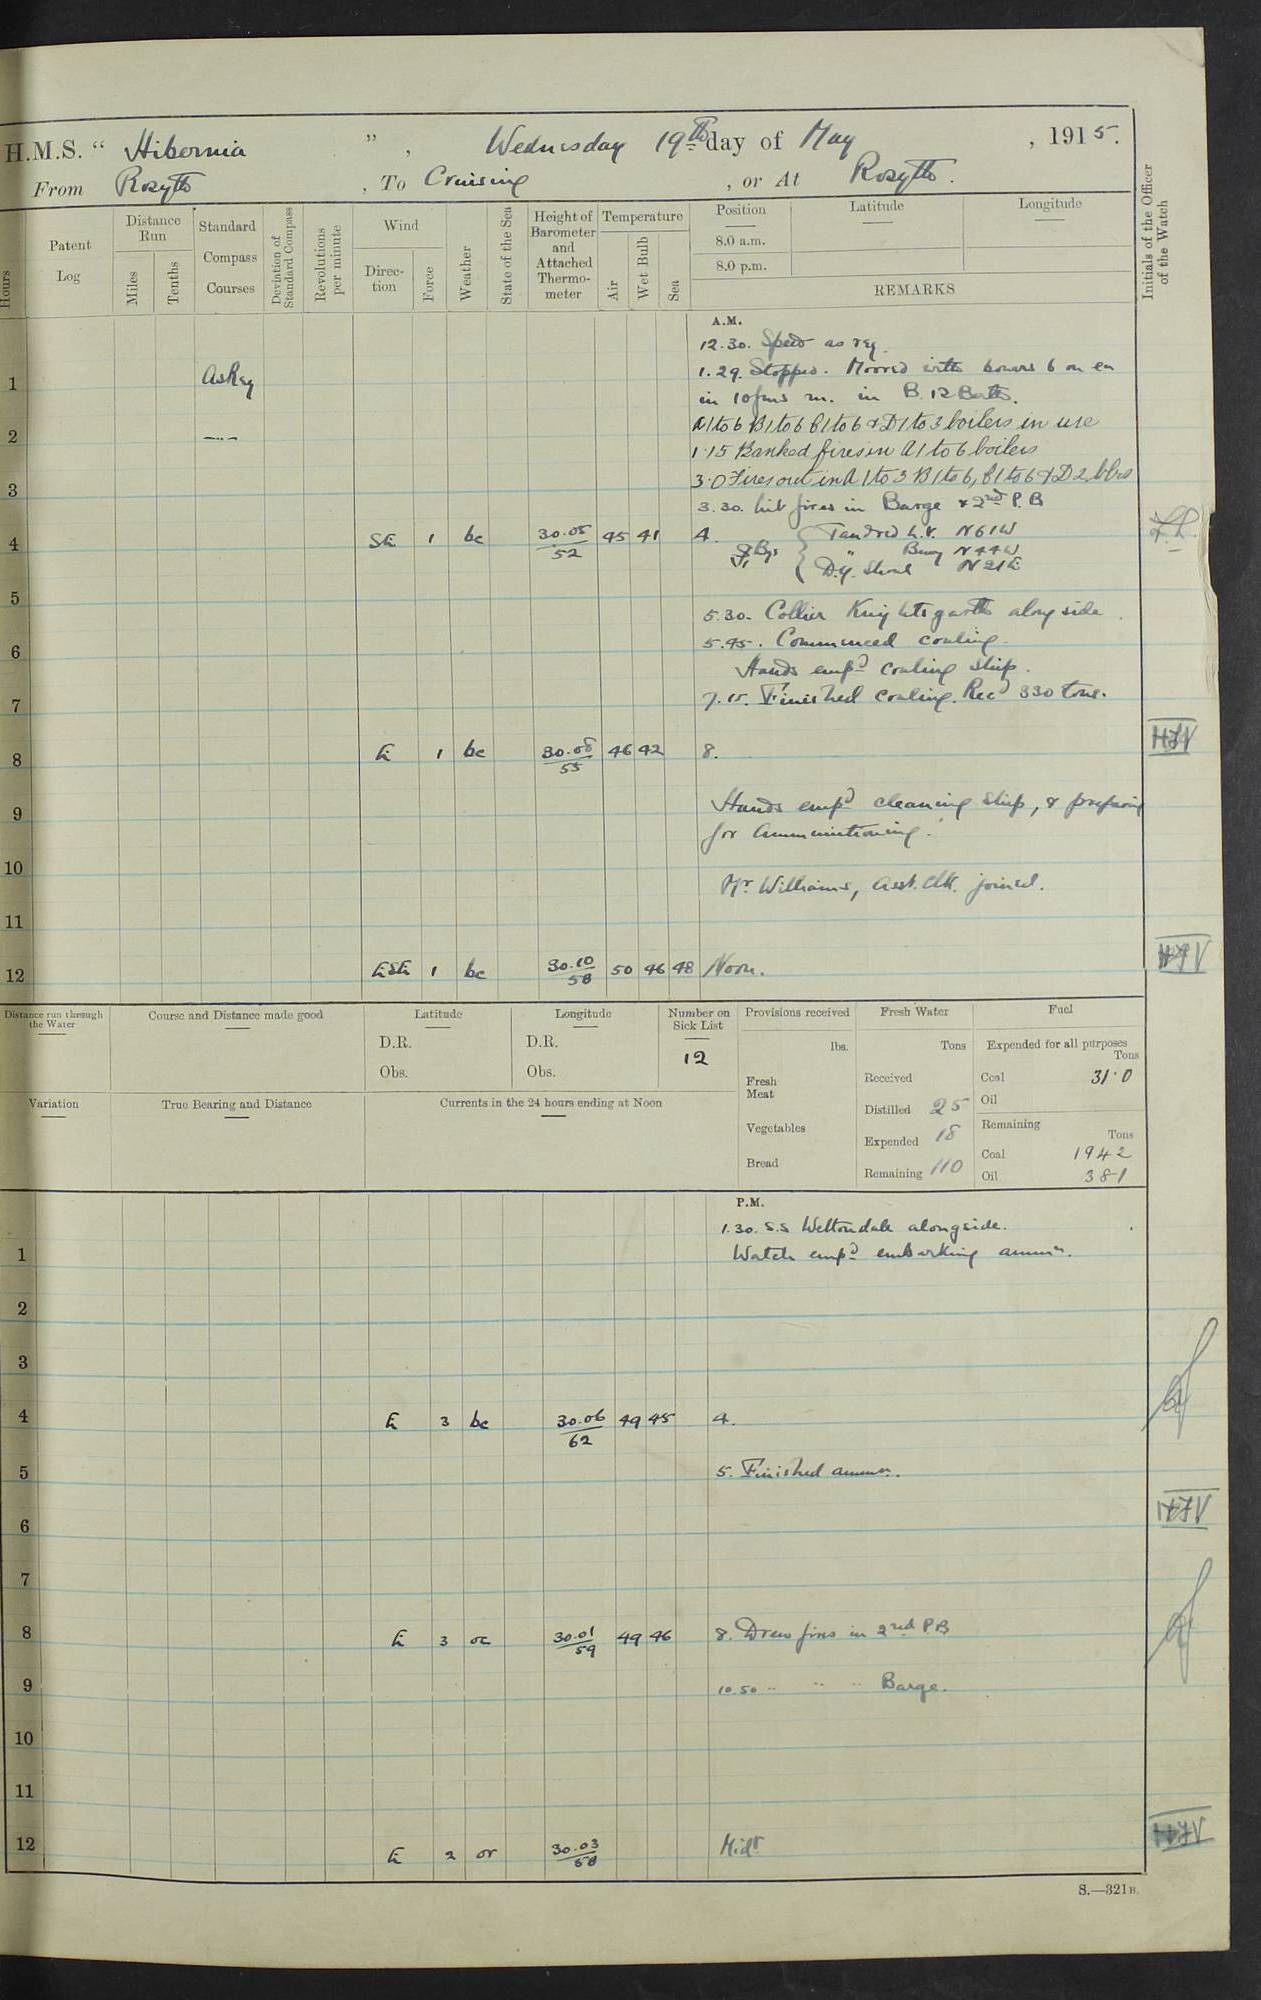 H.M.S. “ Hibernia ” , Wednesday 19th day of May , 1915.
From Rosyth , To Cruising , or At Rosyth.
Hours
Patent Log
Distance Run
Miles
Tenths
Standard Compass Courses
Deviation of Standard Compass
Revolutions per minute
Wind
Direction
Force
Weather
State of the Sea
Height of Barometer and Attached Thermometer
Temperature
Air
Wet Bulb
Sea
Position
8.0 a.m.
8.0 p.m.
Latitude
Longitude
REMARKS
Initials of the Officer of the Watch
A.M.
12.30. Speed as req.
1 As Req 1.29. Stopped. Moored with bowers 6 on ea
in 10 fms m. in B.12 Berth.
2 —"— A1 to 6 B1 to 6 C1 to 6 & D1 to 3 boilers in use
1.15 Banked fires in A1 to 6 boilers
3 3.0 Fires out in A 1 to 3 B1 to 6, C1 to 6 & D2 blrs
3.30. Lit fires in Barge & 2nd P.B
4 SE 1 bc 30.05/52 45 41 4. Bgs { Tandred L.V. N61W
" Buoy N44W
D.G. Shoal N21E
5 5.30. Collier Knightsgarth alongside.
6 5.45. Commenced coaling.
Hands empd coaling ship.
7 7.15. Finished coaling. Recd 330 tons.
8 E 1 bc 30.08/55 46 42 8. HFV
9 Hands empd cleaning ship, & preparing
for ammunitioning.
10 Mr Williams, Asst. Clk. joined.
11
12 ESE 1 bc 30.10/58 50 46 48 Noon. HFV
Distance run through the Water
Course and Distance made good
Latitude
D.R.
Obs.
Longitude
D.R.
Obs.
Number on Sick List
12
Provisions received
lbs.
Fresh Meat
Vegetables
Bread
Fresh Water
Tons
Received
Distilled 25
Expended 18
Remaining 110
Fuel
Expended for all purposes
Tons
Coal 31.0
Oil
Remaining
Tons
Coal 1942
Oil 381
Variation
True Bearing and Distance
Currents in the 24 hours ending at Noon
P.M.
1.30. S.S Weltondale alongside.
1 Watch empd embarking ammn.
2
3
4 E 3 bc 30.06/62 49 45 4.
5 5. Finished ammn.
6 HFV
7
8 E 3 oc 30.01/59 49 46 8. Drew fires in 2nd P.B
9 10.50 " " " Barge.
10
11
12 E 2 or 30.03/58 Midt HFV
S.—321B.